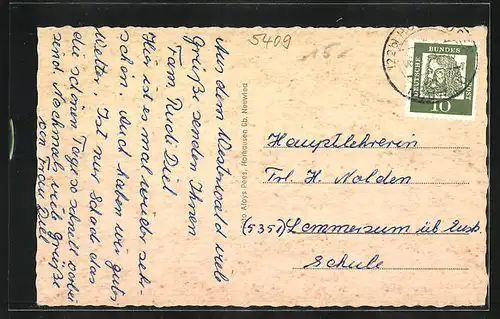 5409
15.-
DEUTSCHE BUNDESPOST
10
Aus dem Westerwald viele
Grüße senden Ihnen
Fam. Rudi Diel
Hier ist es mal wieder sehr
schön. Auch haben wir gutes
Wetter. Ist nur Schade das
die schönen Tage so schnell vorbei
sind Nochmals viele Grüße
von Frau Diel
Foto Aloys Pees, Horhausen Üb. Neuwied
Hauptlehrerin
Frl. H. Nolden
(5351) Lommersum üb Eusk.
Schule